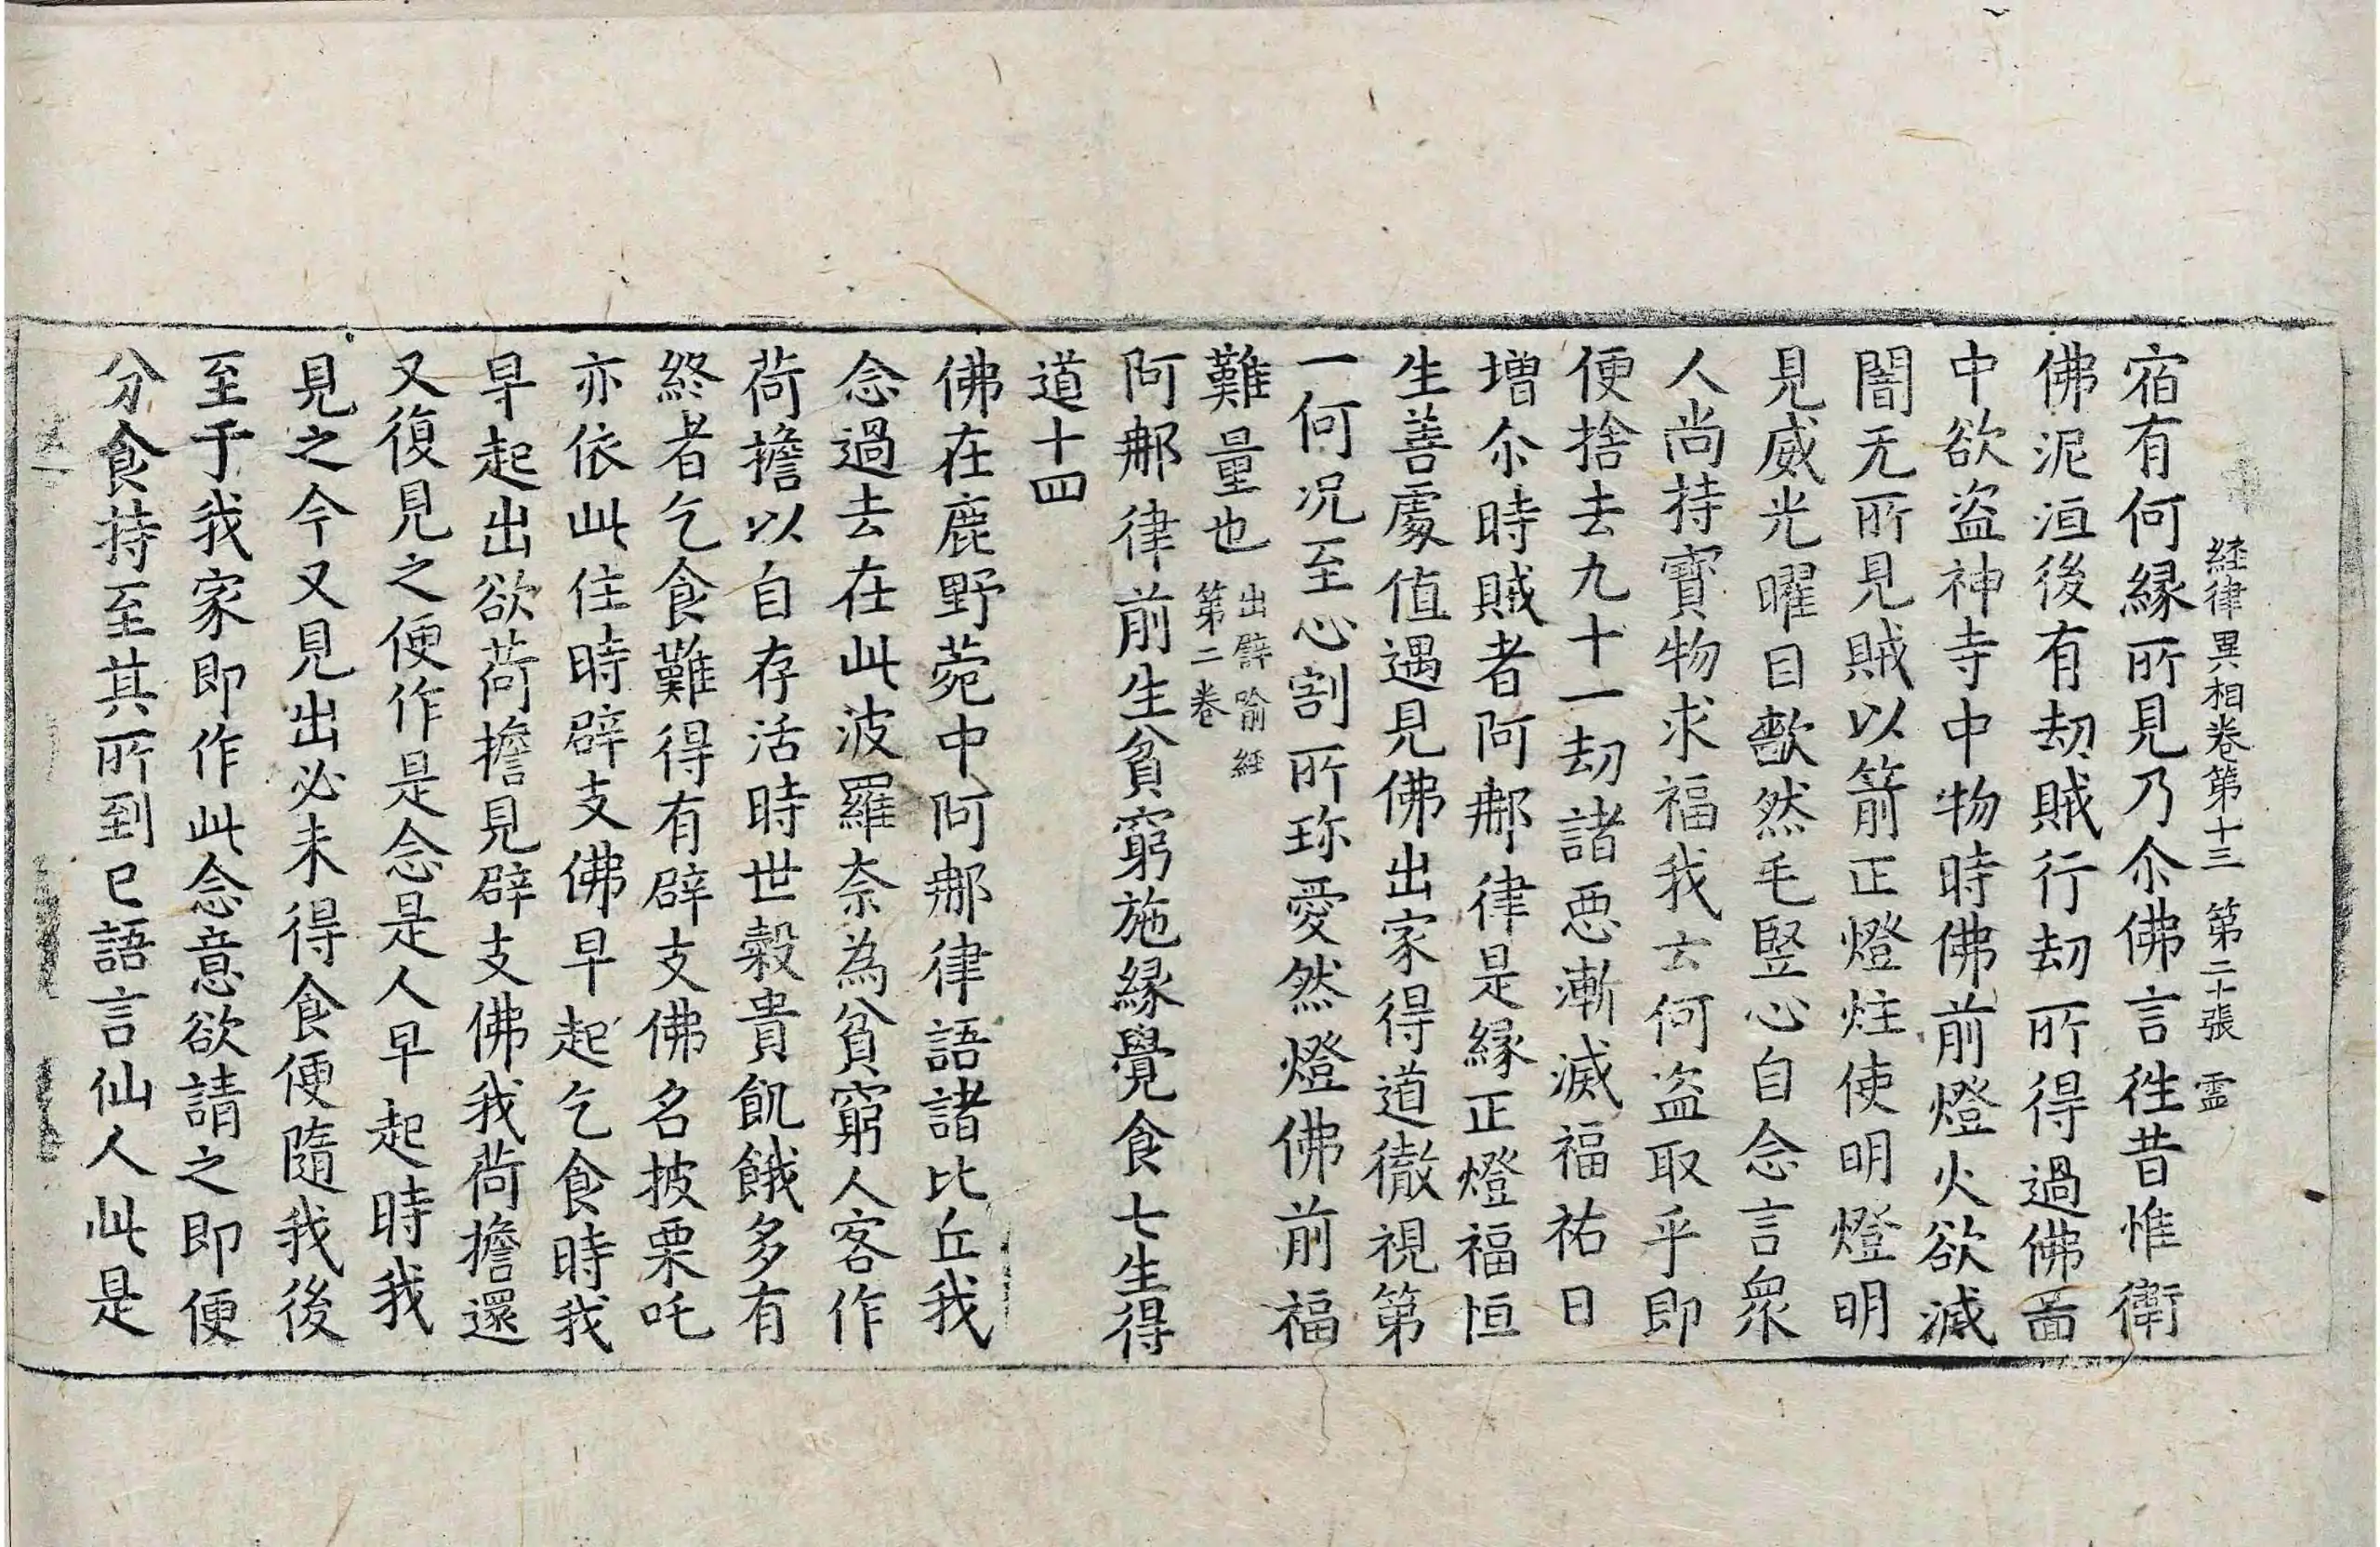 経律異相卷第十三 第二十張 霊
宿有何縁所見乃尒佛言徃昔惟衛
佛泥洹後有劫賊行劫所得過佛啚
中欲盜神寺中物時佛前燈火欲滅
闇无所見賊以箭正燈炷使明燈明
見威光曜目歘然毛竪心自念言衆
人尚持寶物求福我云何盜取乎即
便捨去九十一劫諸惡漸滅福祐日
増尒時賊者阿𨚗律是縁正燈福恒
生善處值遇見佛出家得道徹視第
一何况至心割所珎愛然燈佛前福
難量也
出譬喻經
第二卷
阿𨚗律前生貧窮施縁覺食七生得
道十四
佛在鹿野菀中阿𨚗律語諸比丘我
念過去在此波羅奈為貧窮人客作
荷擔以自存活時世糓貴飢餓多有
終者乞食難得有辟支佛名披栗吒
亦依此住時辟支佛早起乞食時我
早起出欲荷擔見辟支佛我荷擔還
又復見之便作是念是人早起時我
見之今又見出必未得食便隨我後
至于我家即作此念意欲請之即便
分食持至其所到已語言仙人此是